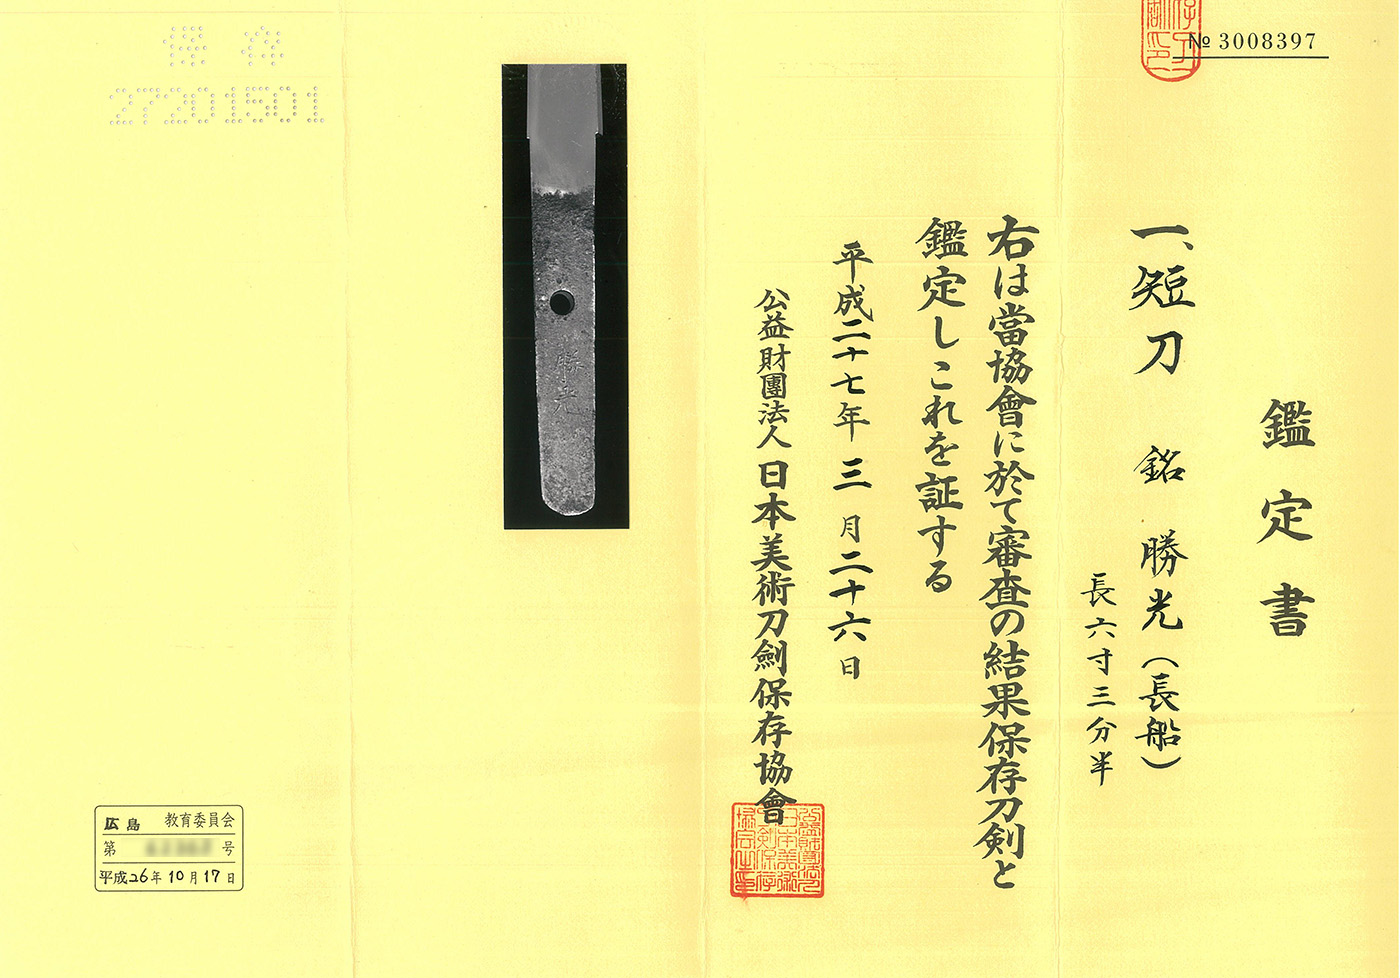 № 3008397
鑑定書
一、短刀 銘 勝光（長船）
長六寸三分半
右は當協會に於て審査の結果保存刀剣と
鑑定しこれを証する
平成二十七年三月二十六日
公益財團法人日本美術刀劍保存協會
勝光
保存
27201501
広島 教育委員会
第 号
平成26年10月17日